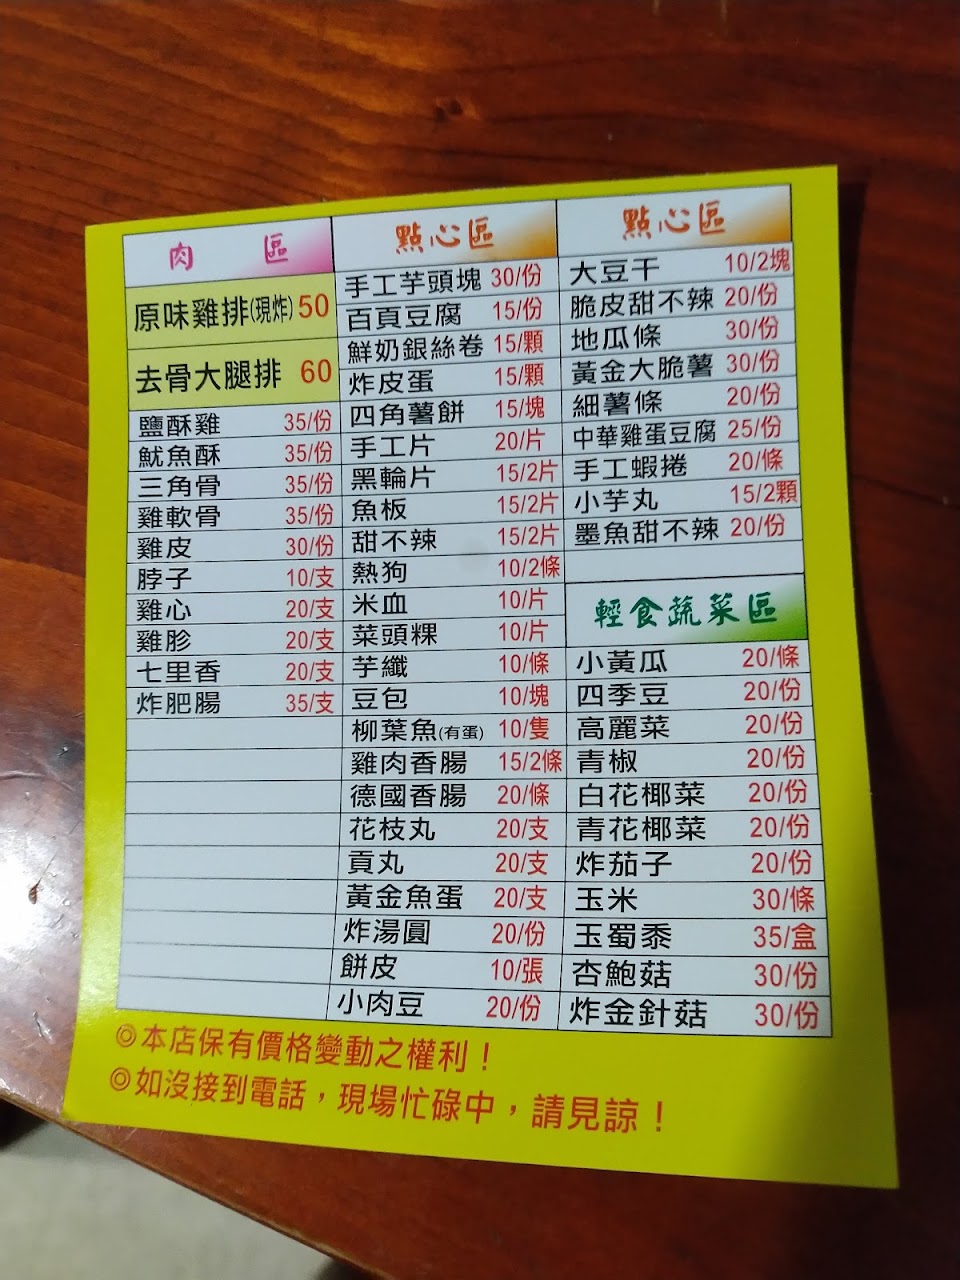 肉 區
原味雞排(現炸) 50
去骨大腿排 60
鹽酥雞 35/份
魷魚酥 35/份
三角骨 35/份
雞軟骨 35/份
雞皮 30/份
脖子 10/支
雞心 20/支
雞胗 20/支
七里香 20/支
炸肥腸 35/支
點心區
手工芋頭塊 30/份
百頁豆腐 15/份
鮮奶銀絲卷 15/顆
炸皮蛋 15/顆
四角薯餅 15/塊
手工片 20/片
黑輪片 15/2片
魚板 15/2片
甜不辣 15/2片
熱狗 10/2條
米血 10/片
菜頭粿 10/片
芋纖 10/條
豆包 10/塊
柳葉魚(有蛋) 10/隻
雞肉香腸 15/2條
德國香腸 20/條
花枝丸 20/支
貢丸 20/支
黃金魚蛋 20/支
炸湯圓 20/份
餅皮 10/張
小肉豆 20/份
點心區
大豆干 10/2塊
脆皮甜不辣 20/份
地瓜條 30/份
黃金大脆薯 30/份
細薯條 20/份
中華雞蛋豆腐 25/份
手工蝦捲 20/條
小芋丸 15/2顆
墨魚甜不辣 20/份
輕食蔬菜區
小黃瓜 20/條
四季豆 20/份
高麗菜 20/份
青椒 20/份
白花椰菜 20/份
青花椰菜 20/份
炸茄子 20/份
玉米 30/條
玉蜀黍 35/盒
杏鮑菇 30/份
炸金針菇 30/份
◎本店保有價格變動之權利！
◎如沒接到電話，現場忙碌中，請見諒！